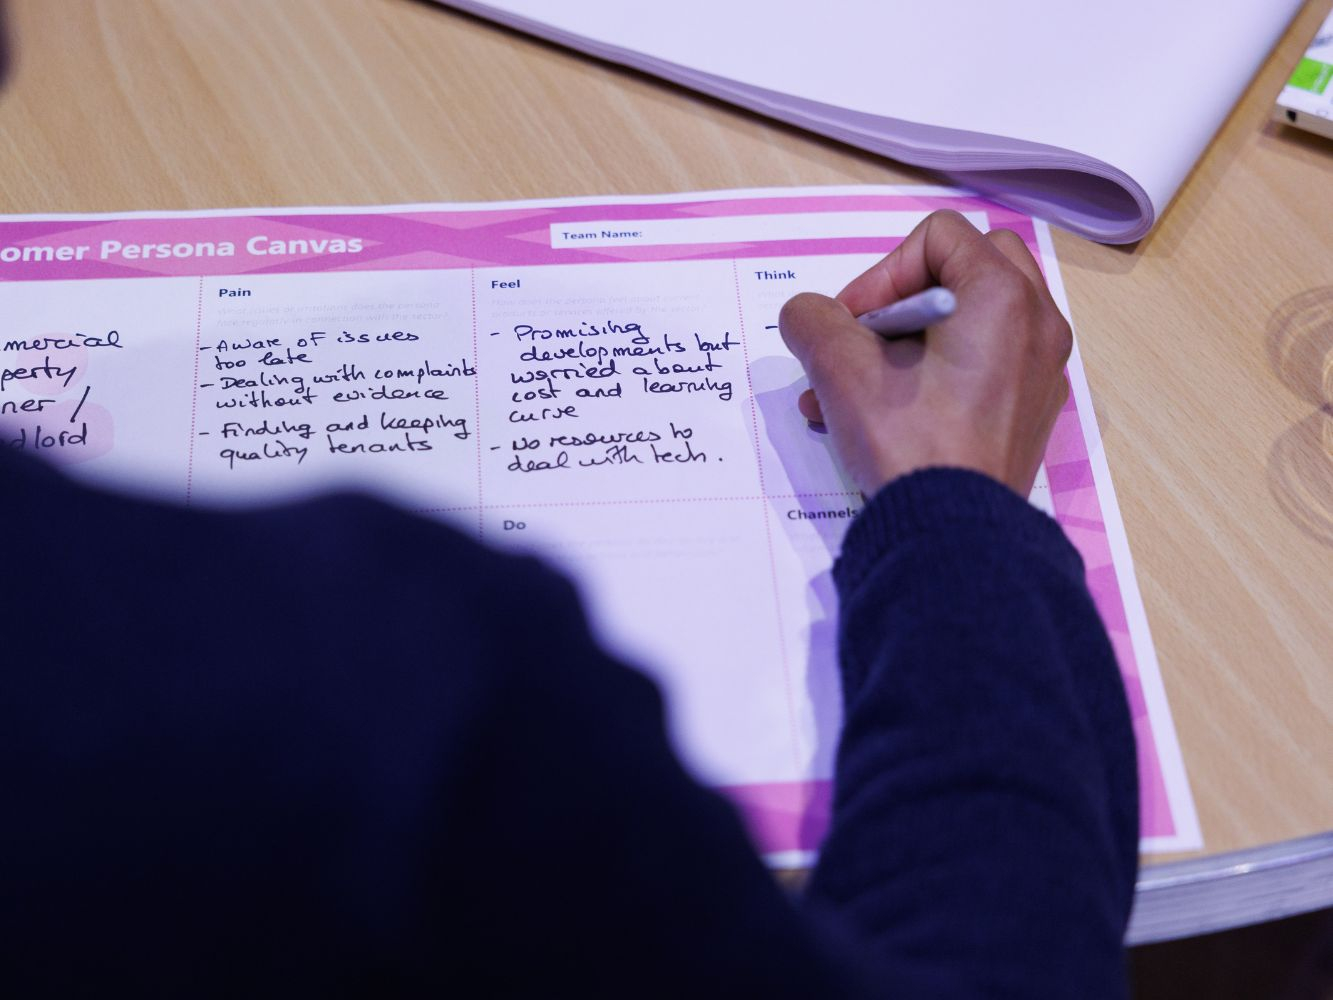 omer Persona Canvas
Team Name:
mercial
perty
ner /
dlord
Pain
What issues or irritations does the persona
face regularly in connection with the sector?
- Aware of issues
too late
- Dealing with complaints
without evidence
- Finding and keeping
quality tenants
Feel
How does the persona feel about current
products or services offered by the sector?
- Promising
developments but
worried about
cost and learning
curve
- No resources to
deal with tech.
Think
-
Do
Channels